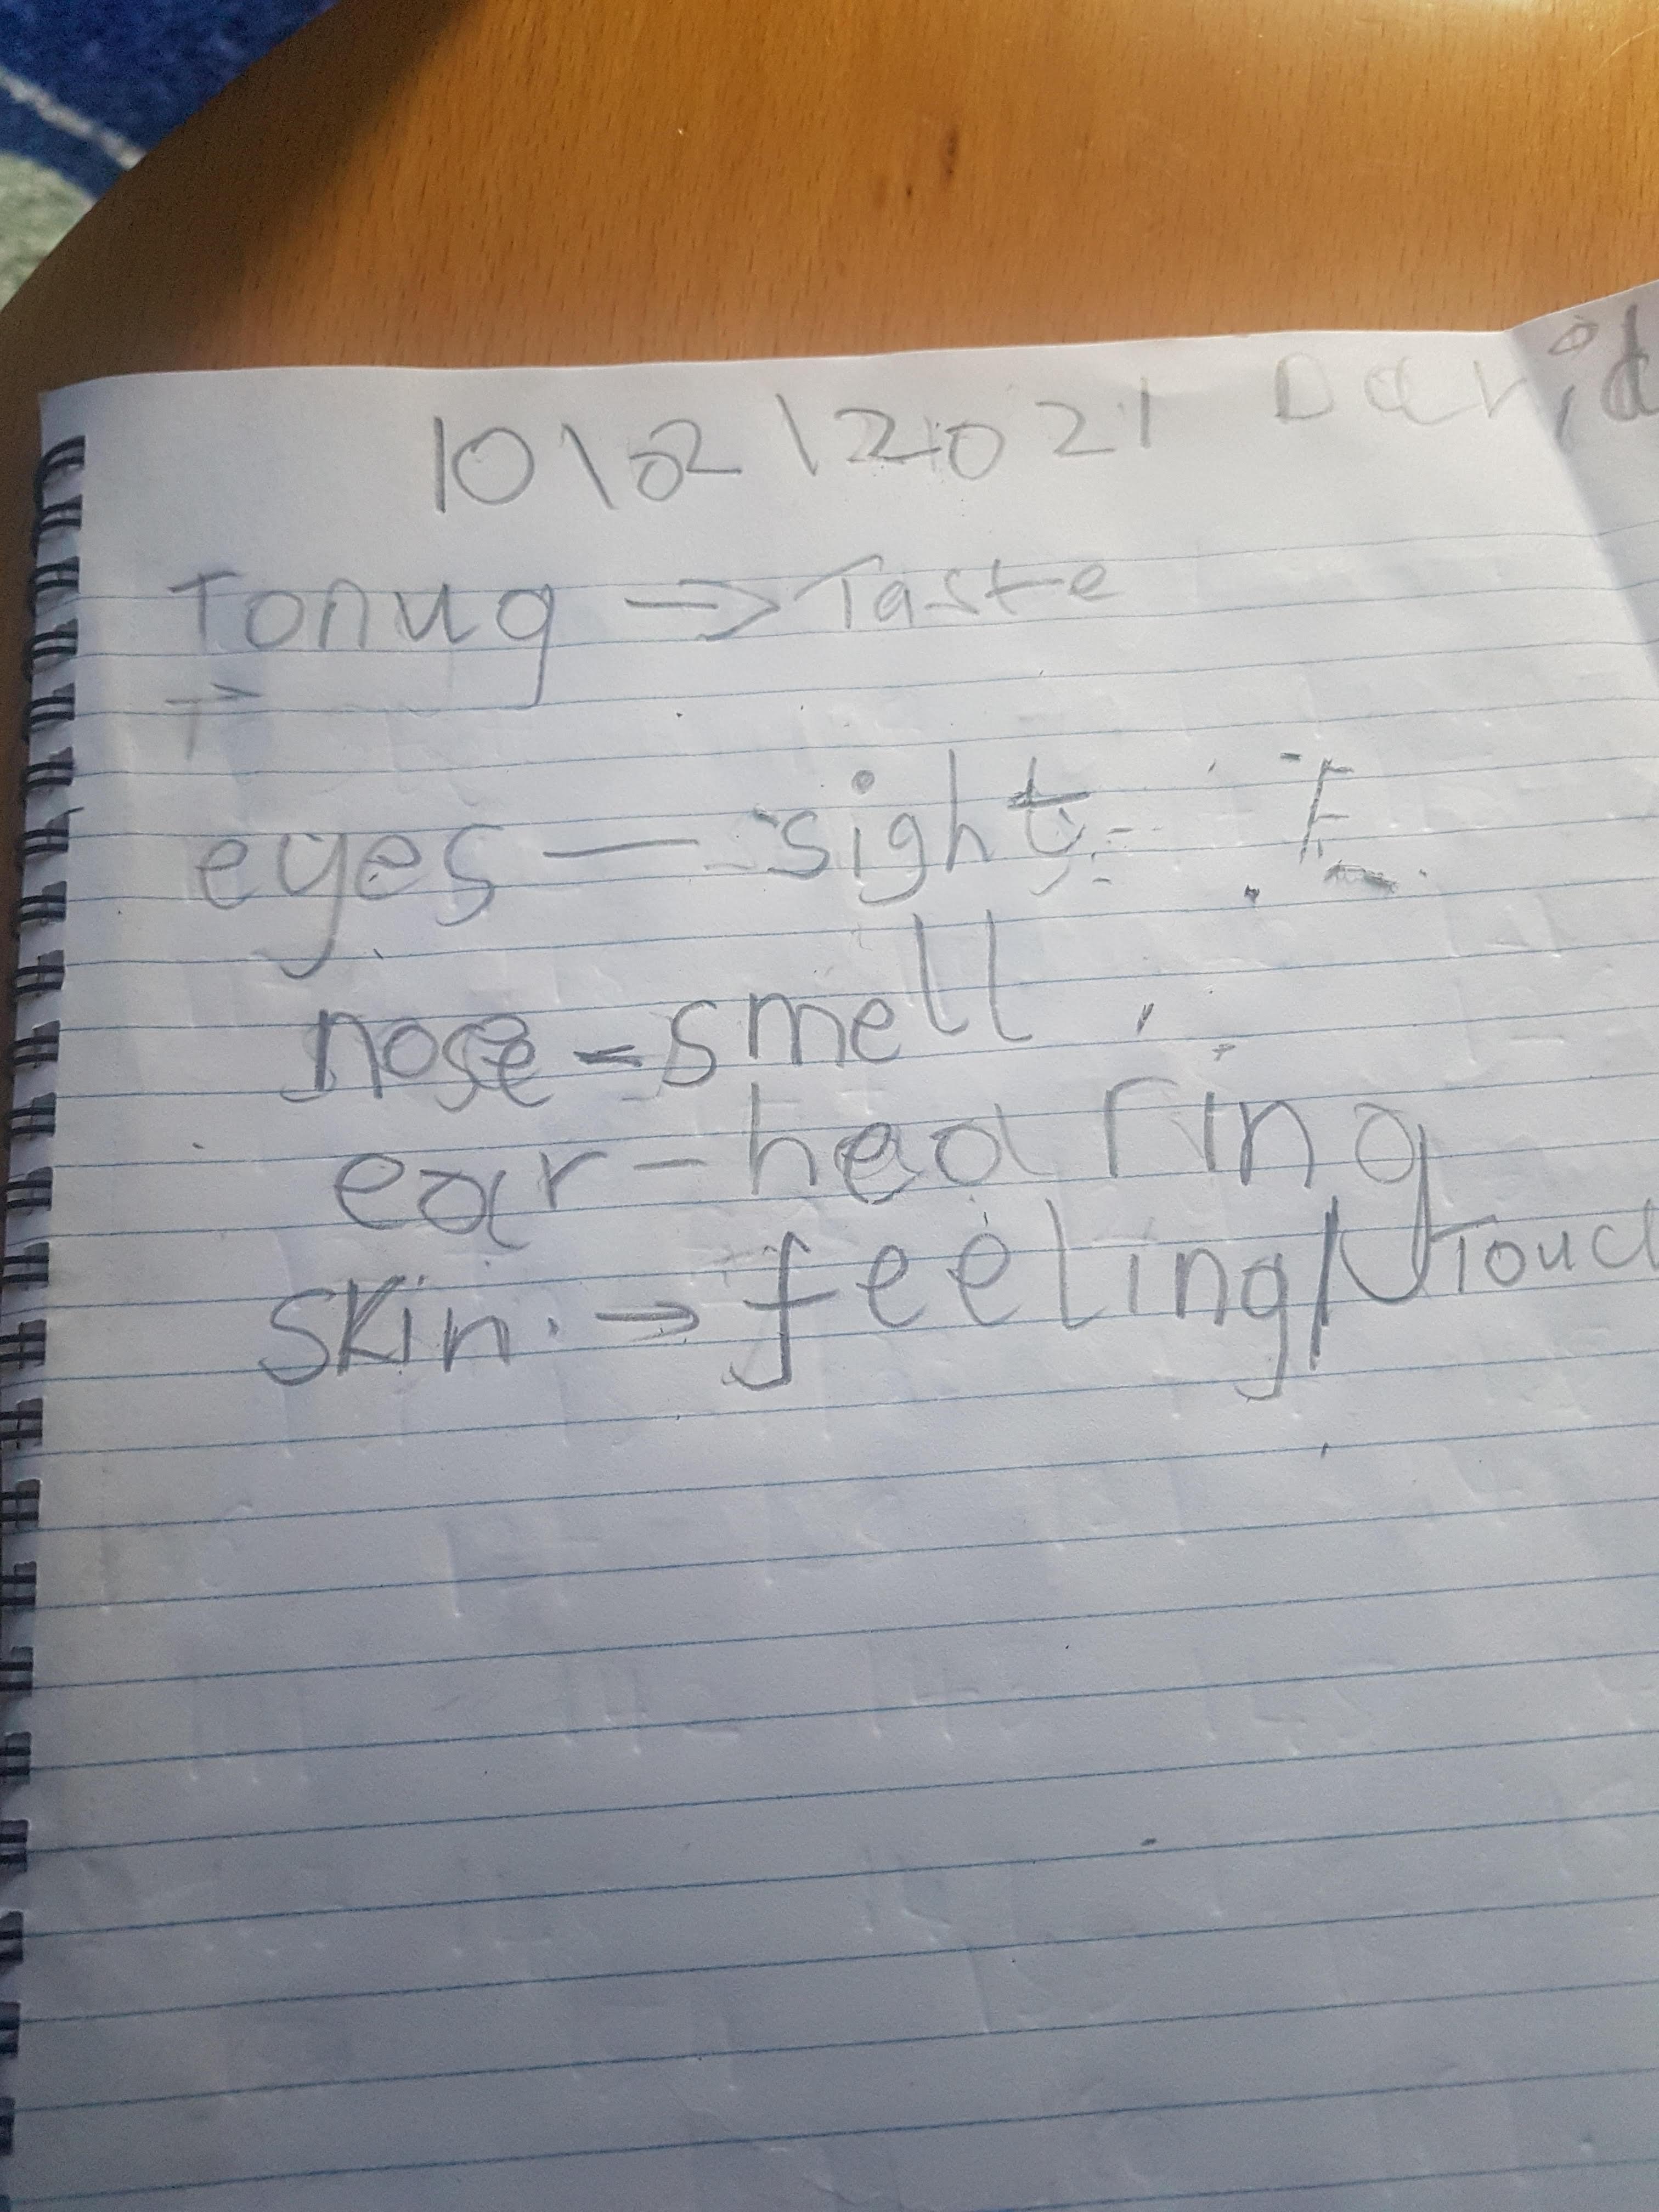 10\02\2021 David
Tonug → Taste
T
eyes — sight
nose - smell
ear - hearing
skin. → feeling/Touc